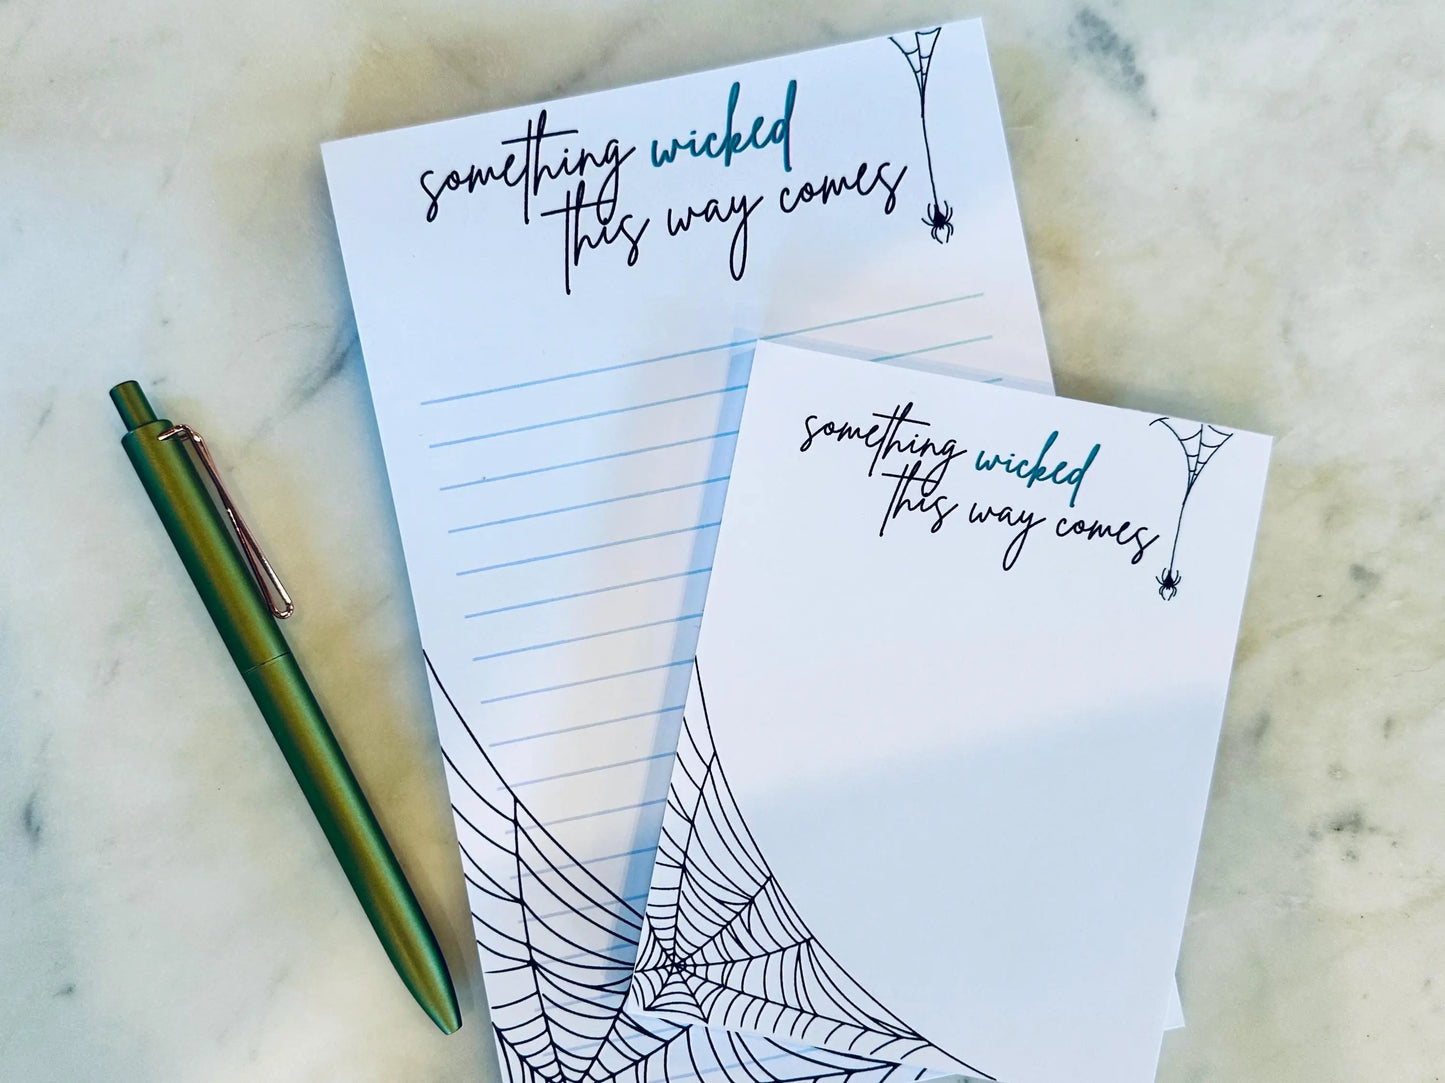 something wicked
this way comes
something wicked
this way comes